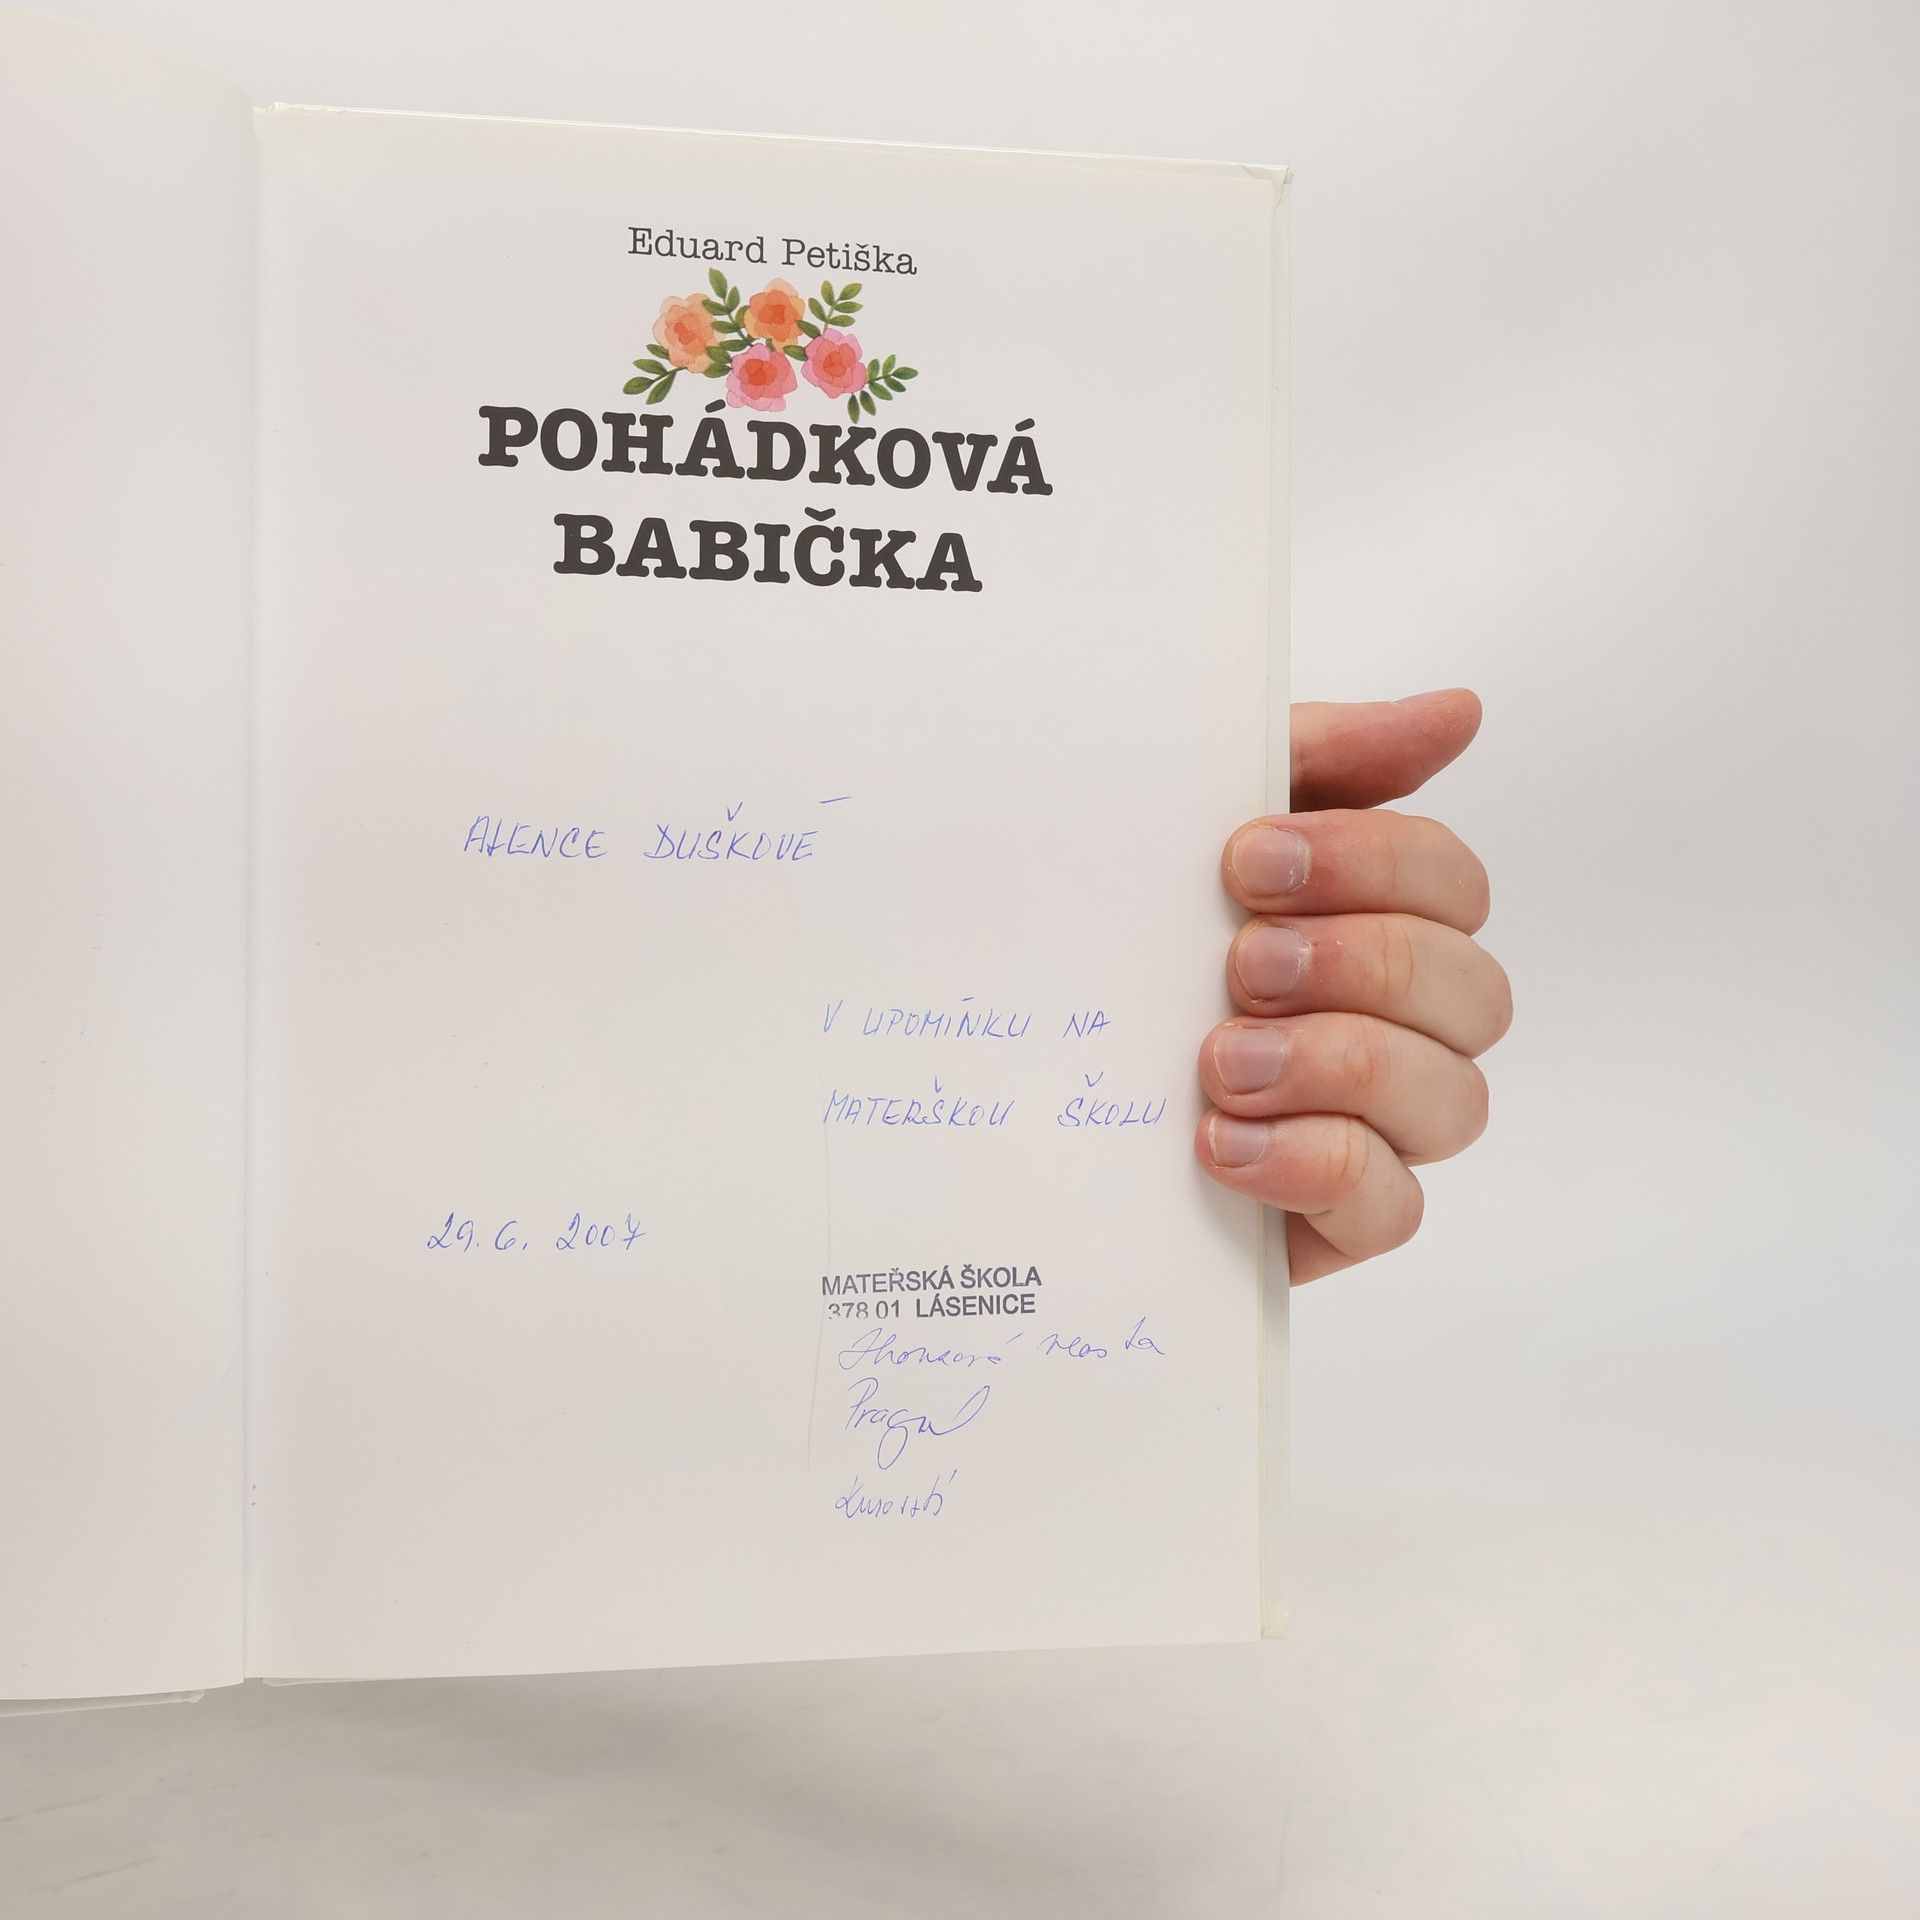 Eduard Petiška
POHÁDKOVÁ
BABIČKA
ALENCE DUŠKOVÉ
V UPOMÍNKU NA
MATEŘSKOU ŠKOLU
29. 6. 2007
MATEŘSKÁ ŠKOLA
378 01 LÁSENICE